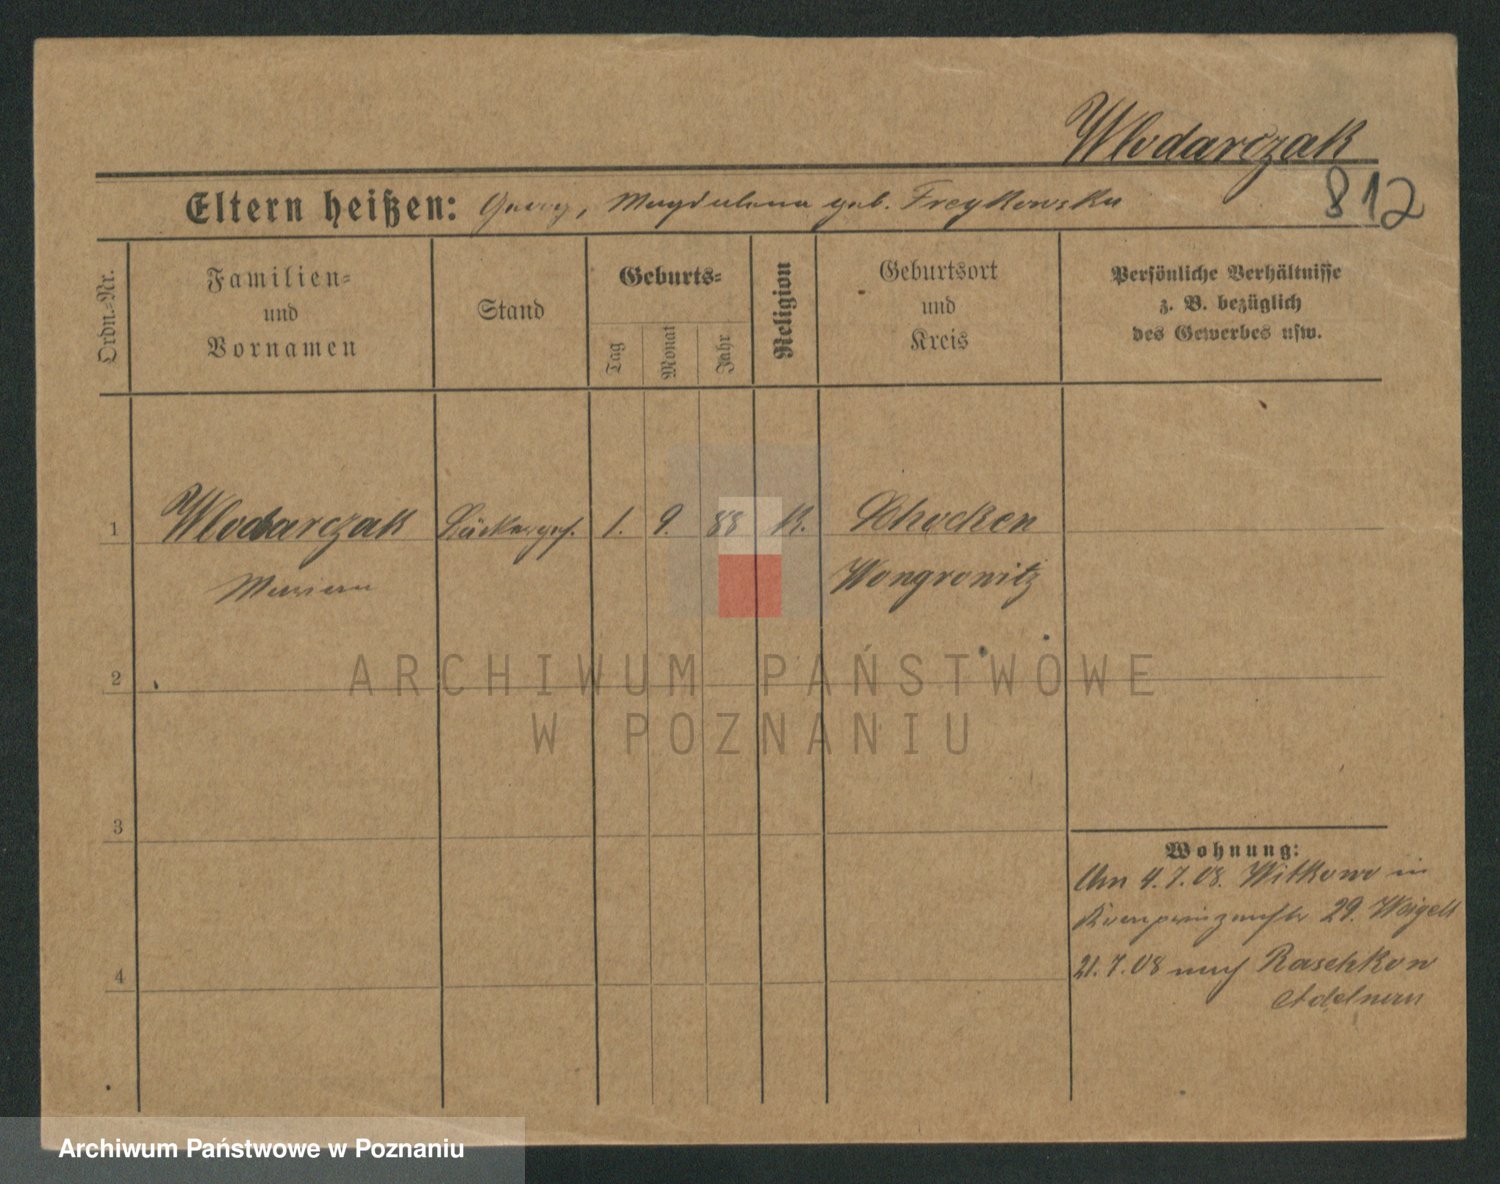 Wlodarczak
812
Eltern heißen: Georg, Magdalena geb. Freykowska
Ordn.-Nr.
Familien-
und
Vornamen
Stand
Geburts-
Tag
Monat
Jahr
Religion
Geburtsort
und
Kreis
Persönliche Verhältnisse
z. B. bezüglich
des Gewerbes usw.
1 Wlodarczak Bäckerges. 1. 9. 88 K. Schocken
Marian Wongrowitz
2
ARCHIWUM PAŃSTWOWE
W POZNANIU
3
Wohnung:
Am 4.7.08. Witkowo in
Kronprinzenstr 29. Weigelt
4
21.7.08 nach Raschkow
Adelnau
Archiwum Państwowe w Poznaniu